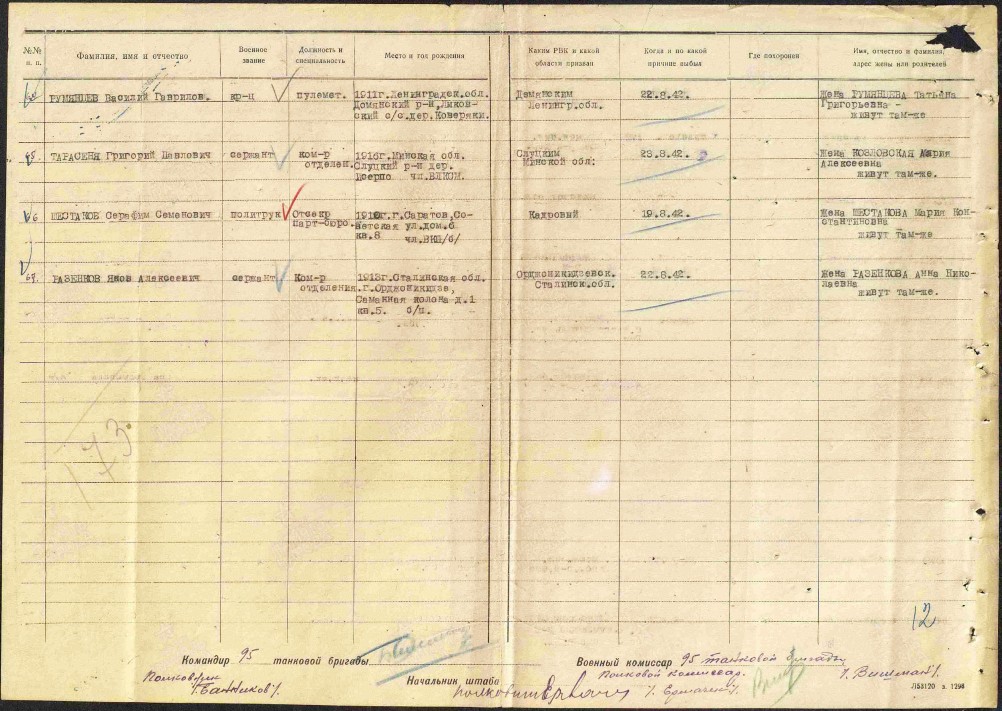 №№ п. п. Фамилия, имя и отчество Военное звание Должность и специальность Место и год рождения Каким РВК и какой области призван Когда и по какой причине выбыл Где похоронен Имя, отчество и фамилия, адрес жены или родителей
РУМЯНЦЕВ Василий Гаврилов. кр-ц пулемет. 1911г.Ленинградск.обл. Демянским 22.8.42. Жена РУМЯНЦЕВА Татьяна
Домянский р-н,Ликов- Ленингр.обл. Григорьевна -
ский с/с.дер.Коверяки. живут там-же
65. ТАРАСЕНЯ Григорий Павлович сержант ком-р 1916г.Минская обл. Слуцким 23.8.42. Жена КОЗЛОВСКАЯ Мария
отделен. Слуцкий р-н дер. Минской обл. Алексеевна
чл.ВЛКСМ. живут там-же.
66 ШЕСТАКОВ Серафим Семенович политрук Отсекр г.Саратов,Со- Кадровый 19.8.42. Жена ШЕСТАКОВА Мария Кон-
парт-бюро. ветская ул.дом.6 стантиновна
кв.8 чл.ВКП/б/ живут там-же
67. РАЗЕНКОВ Яков Алексеевич сержант Ком-р 1913г.Сталинская обл. Орджоникидзевск. 22.8.42. Жена РАЗЕНКОВА Анна Нико-
отделения. г.Орджоникидзе, Сталинск.обл. лаевна
колона д.1 живут там-же.
кв.5. б/п.
173
12
Командир 95 танковой бригады Военный комиссар 95 танковой бригады
Полковник Полковой комиссар
/Банников/. Начальник штаба /. Вишман /.
Л53120 з. 1298